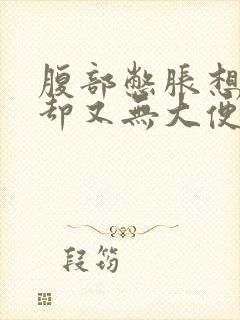 腹部憋脹想
卻又無大便
段筠